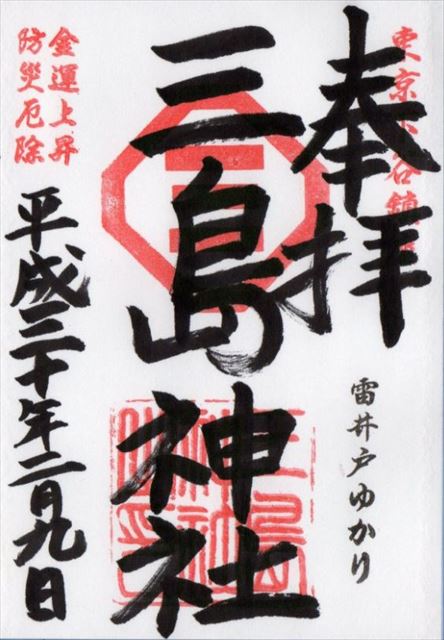 奉拝
東京谷鎮
雷井戸ゆかり
三島神社
金運上昇
防災厄除
平成三十年二月九日